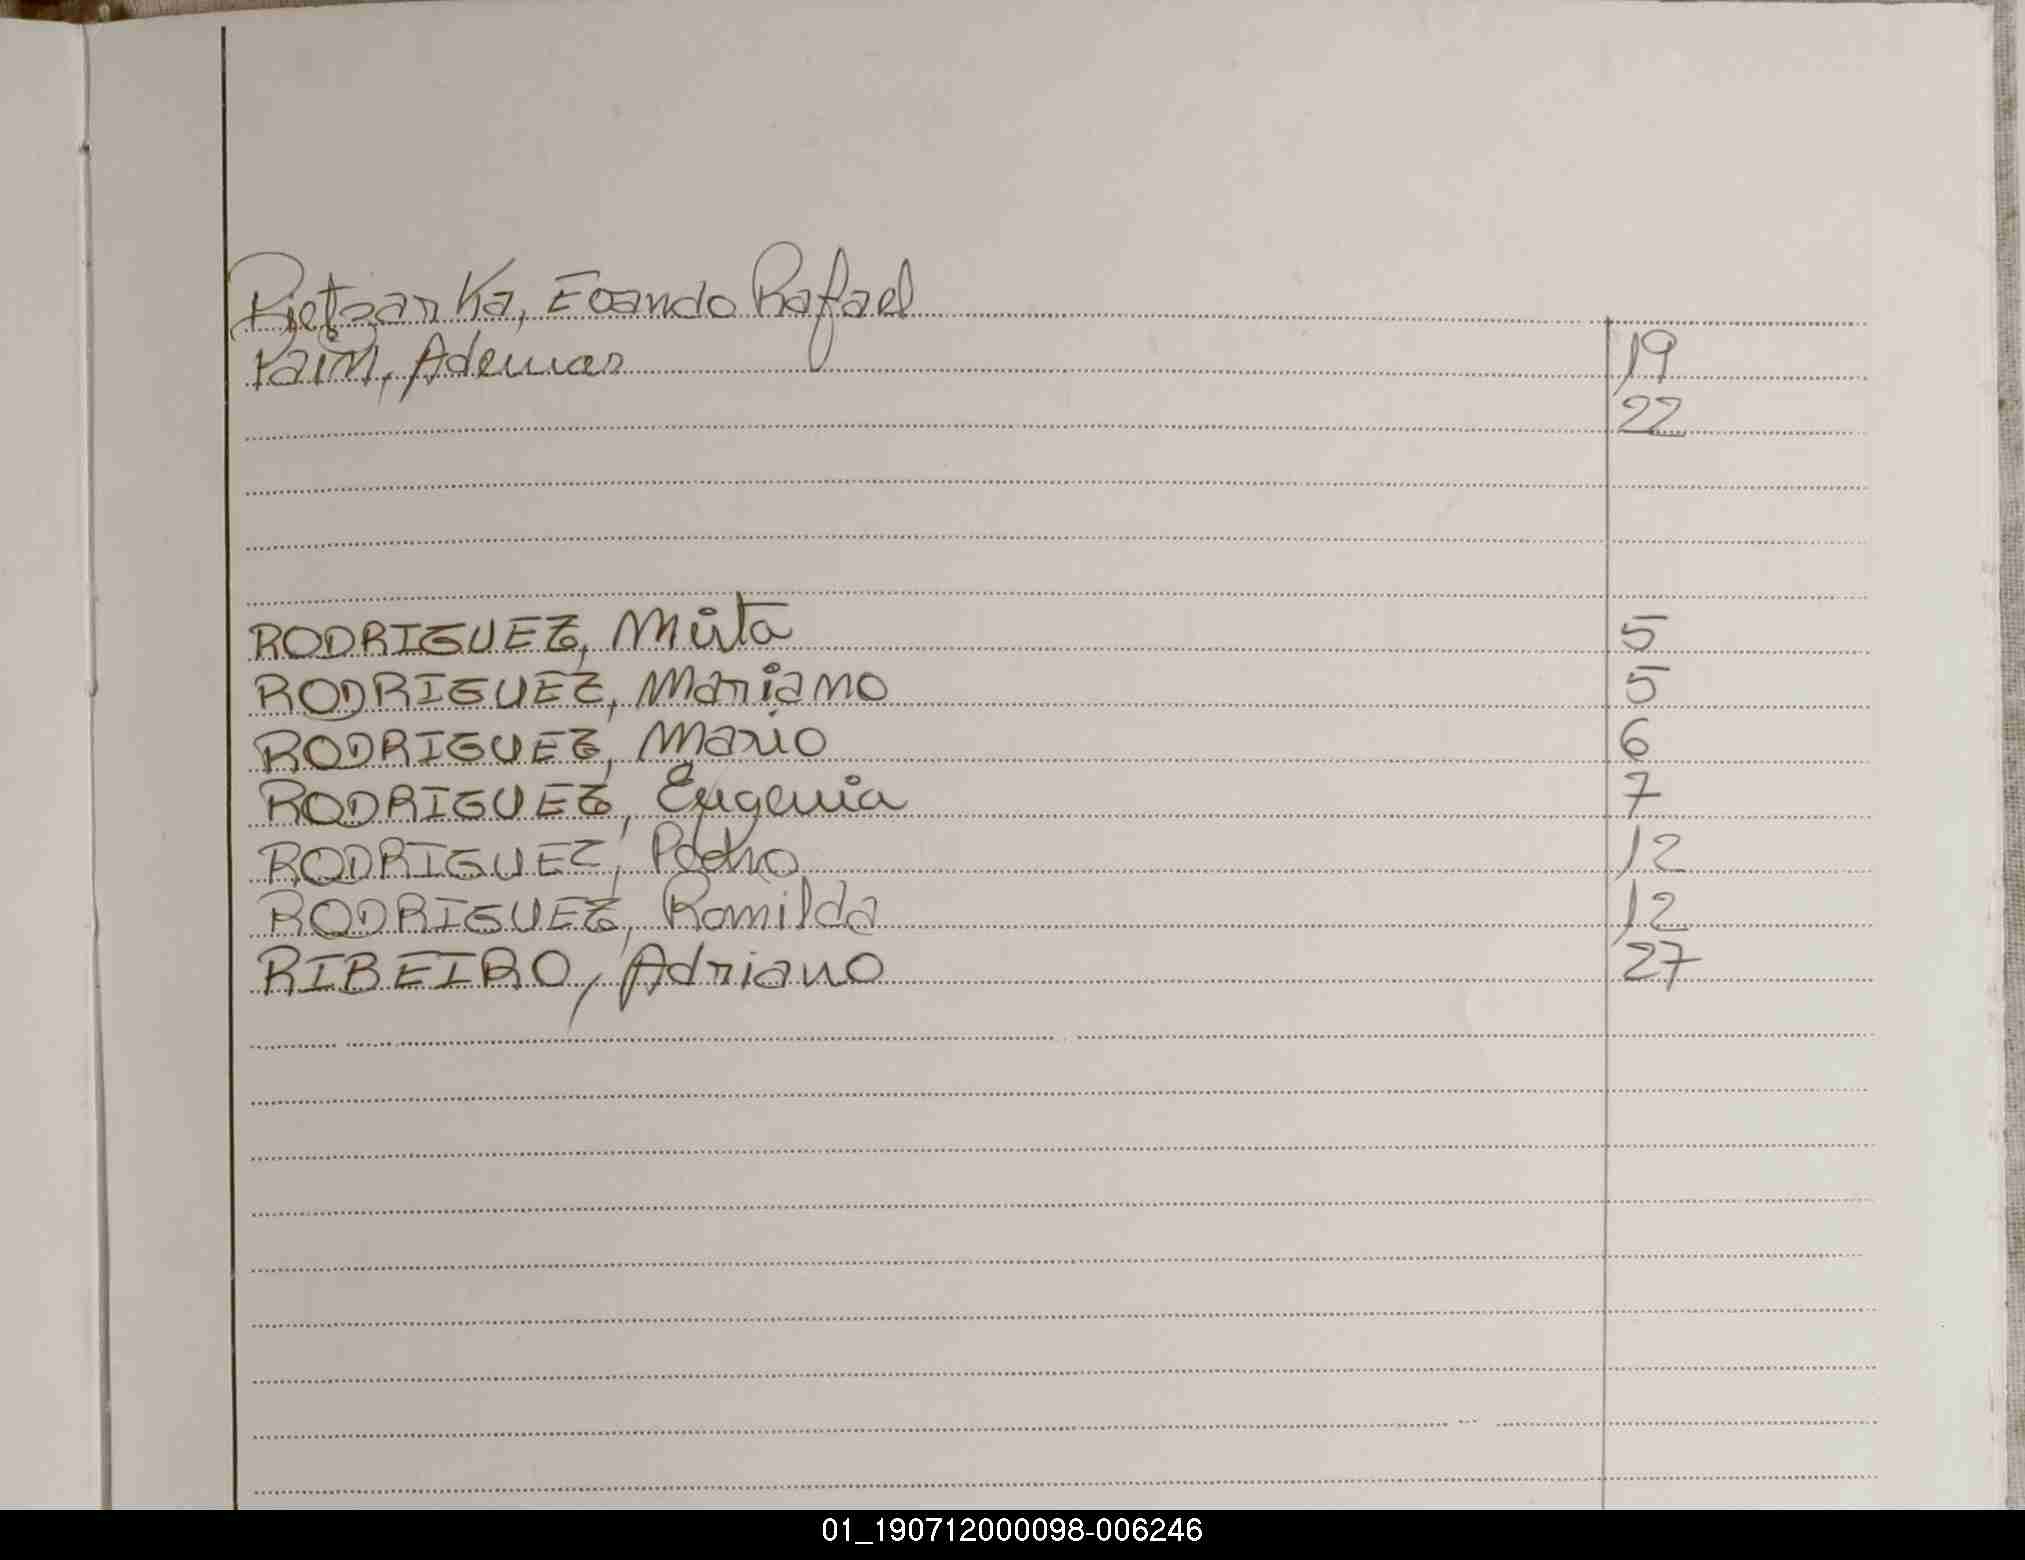 Pietzarka, Eoando Rafael
Paim, Ademar 19
22
RODRIGUEZ, Mirta 5
RODRIGUEZ, Mariano 5
RODRIGUEZ, Mario 6
RODRIGUEZ, Eugenia 7
RODRIGUEZ, Pedro 12
RODRIGUEZ, Romilda 12
RIBEIRO, Adriano 27
01_190712000098-006246